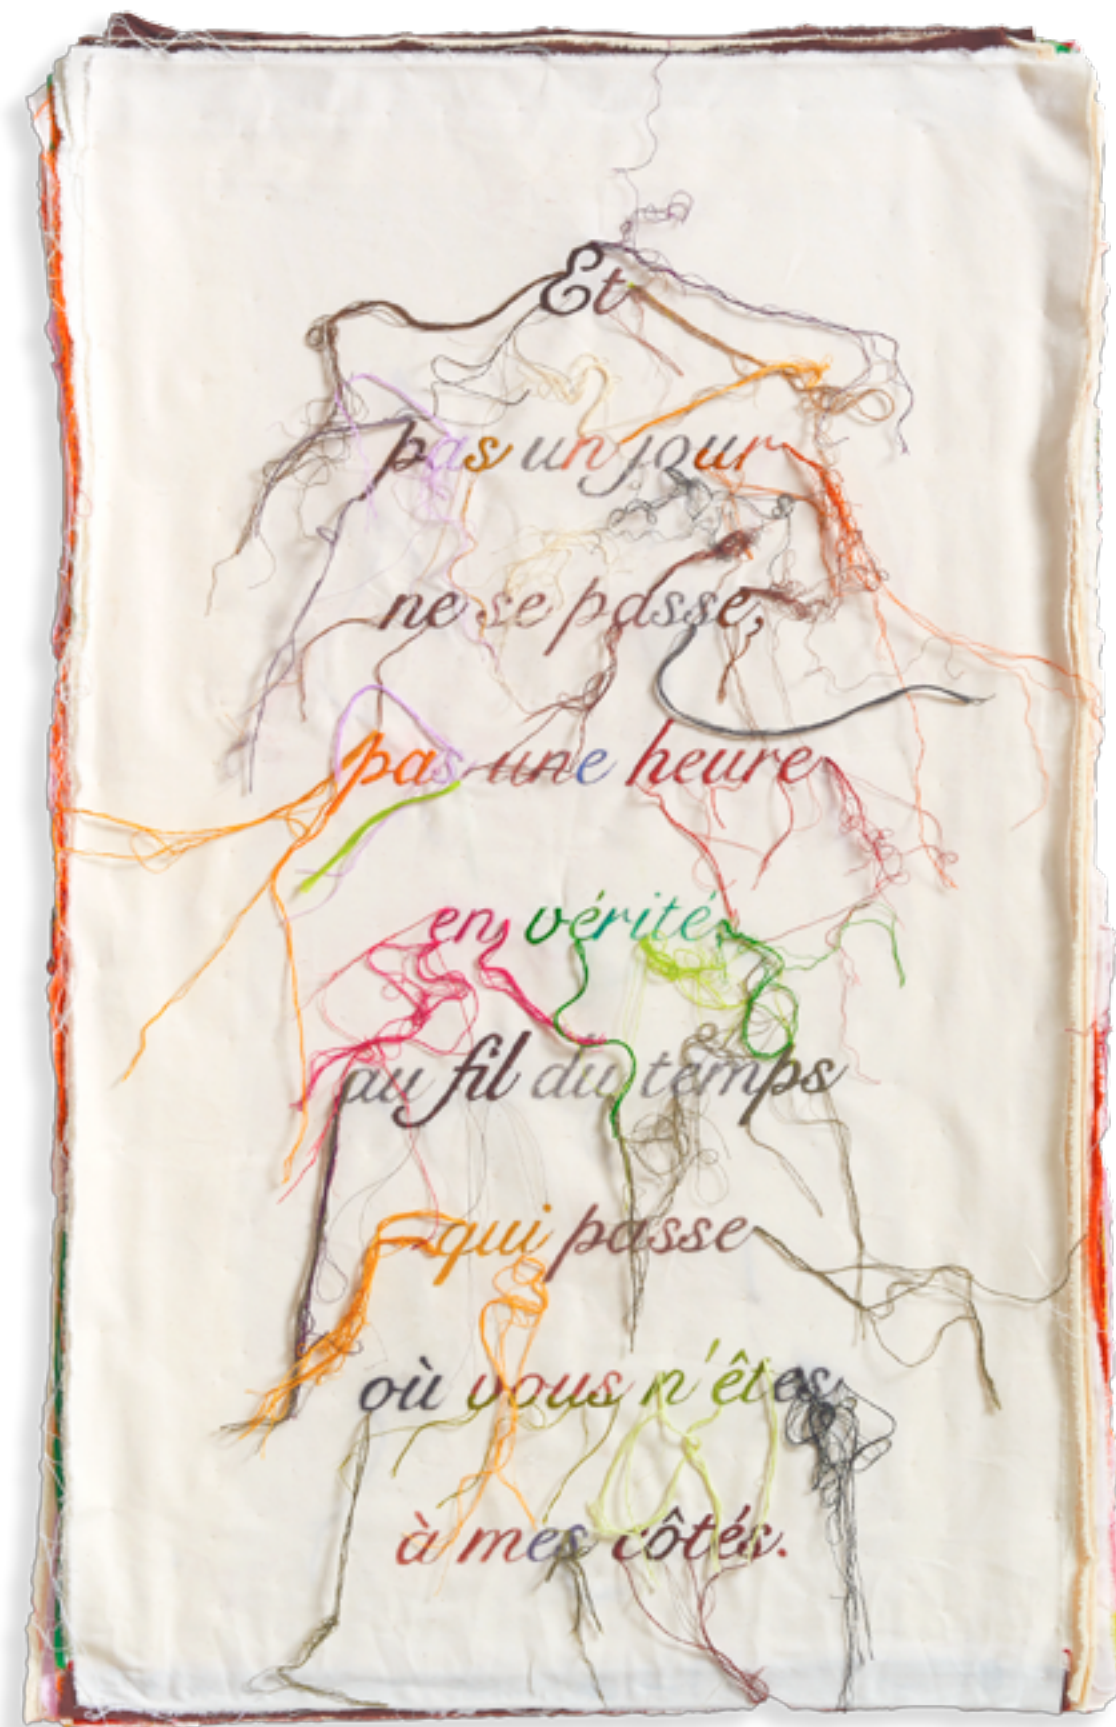 Et
pas un jour
ne se passe,
pas une heure
en vérité
au fil du temps
qui passe
où vous n'êtes
à mes côtés.